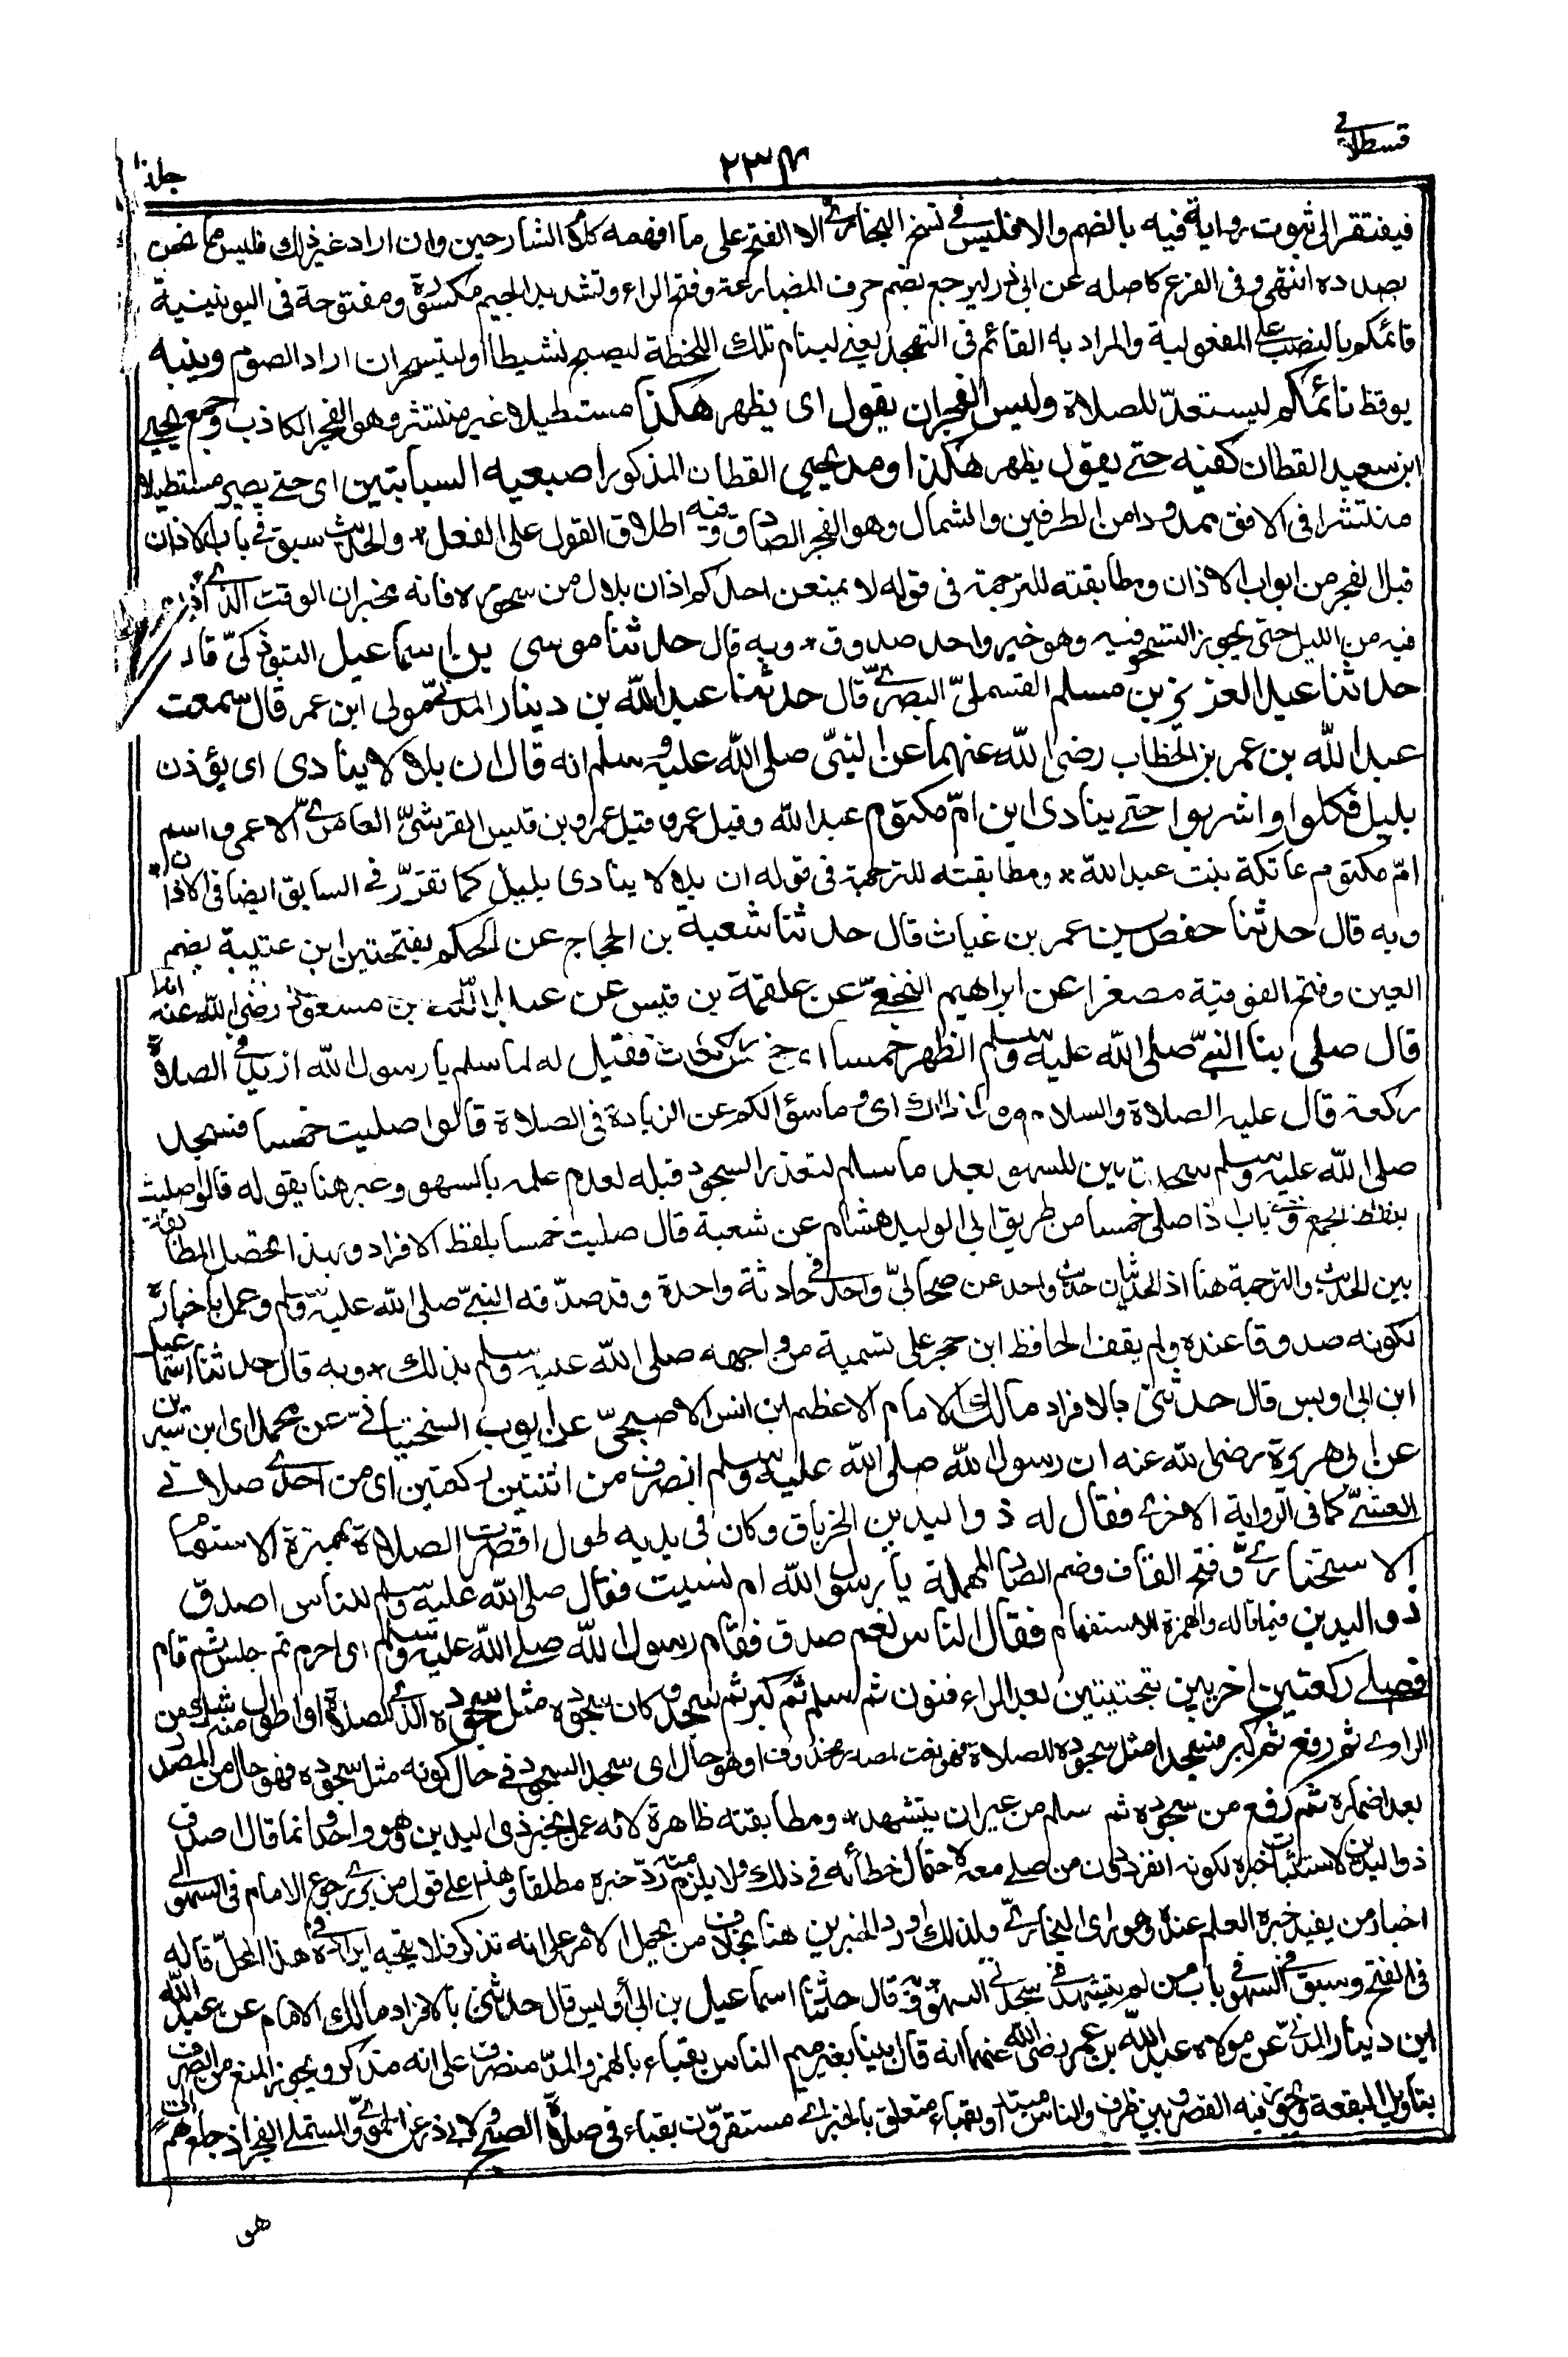 قسطلانی
۲۳۴
جلد۱۰
فيفتقر الى ثبوت رواية فيه بالضم والا فليس فى نسخ البخارى الا الفتح على ما افهمه كلام الشارحين وان اراد غير ذلك فليس مما نحن
بصدده انتهى وفى الفرع كاصله عن ابى ذر ليرجع بضم حرف المضارعة وفتح الراء وتشديد الجيم مكسورة ومفتوحة فى اليونينية
قائمكم بالنصب على المفعولية والمراد به القائم فى التهجد يعنى لينام تلك اللحظة ليصبح نشيطا او ليتسحر ان اراد الصوم وينبه
يوقظ نائمكم ليستعدّ للصلاة وليس الفجر ان يقول اى يظهر هكذا مستطيلا غير منتشر وهو الفجر الكاذب وجمع يحيى
ابن سعيد القطان كفيه حتى يقول يظهر هكذا ومد يحيى القطان المذكور اصبعيه السبابتين اى حتى يصير مستطيلا
منتشرا فى الافق ممدودا من الطرفين والشمال وهو الفجر الصادق وفيه اطلاق القول على الفعل * والحديث سبق فى باب الاذان
قبل الفجر من ابواب الاذان ومطابقته للترجمة فى قوله لا يمنعن احدكم اذان بلال من سحوره فانه يخبر ان الوقت الذى اذن
فيه من الليل حتى يجوز التسحر فيه وهو خبر واحد صدوق * وبه قال حدثنا موسى بن اسماعيل التبوذكىّ قال
حدثنا عبد العزيز بن مسلم القسملىّ البصرىّ قال حدثنا عبد الله بن دينار المدنى مولى ابن عمر قال سمعت
عبد الله بن عمر بن الخطاب رضى الله عنهما عن النبىّ صلى الله عليه وسلم انه قال ان بلالا ينادى اى يؤذن
بليل فكلوا واشربوا حتى ينادى ابن امّ مكتوم عبد الله وقيل عمرو قيل عمرو بن قيس القرشىّ العامرىّ الاعمى واسم
امّ مكتوم عاتكة بنت عبد الله * ومطابقته للترجمة فى قوله ان بلالا ينادى بليل كما تقرّر فى السابق ايضا فى الاذان *
وبه قال حدثنا حفص بن عمر بن غياث قال حدثنا شعبة بن الحجاج عن الحكم بفتحتين ابن عتيبة بضم
العين وفتح الفوقية مصغرا عن ابراهيم النخعىّ عن علقمة بن قيس عن عبد الله بن مسعود رضى الله عنه انه
قال صلى بنا النبىّ صلى الله عليه وسلم الظهر خمسا اى خمس ركعات فقيل له لما سلم يا رسول الله ازيد فى الصلاة
ركعة قال عليه الصلاة والسلام وما ذاك اى وما سؤالكم عن الزيادة فى الصلاة قالوا صليت خمسا فسجد
صلى الله عليه وسلم سجدتين للسهو بعد ما سلم لتعذر السجود قبله لعدم علمه بالسهو وعبر هنا بقوله قالوا صليت
بلفظ الجمع وفى باب اذا صلى خمسا من طريق ابى الوليد هشام عن شعبة قال صليت خمسا بلفظ الافراد وبهذا تحصل المطابقة
بين الحديث والترجمة هنا اذ الحديثان حديث واحد عن صحابىّ واحد فى حادثة واحدة وقد صدّقه النبىّ صلى الله عليه وسلم وعمل باخباره
لكونه صدوقا عنده ولم يقف الحافظ ابن حجر على تسمية من واجهه صلى الله عليه وسلم بذلك * وبه قال حدثنا اسماعيل
ابن ابى اويس قال حدثنى بالافراد مالك الامام الاعظم ابن انس الاصبحىّ عن ايوب السختيانىّ عن محمد اى ابن سيرين
عن ابى هريرة رضى الله عنه ان رسول الله صلى الله عليه وسلم انصرف من اثنتين ركعتين اى من احدى صلاتى
العشىّ كما فى الرواية الاخرى فقال له ذو اليدين الخرباق وكان فى يديه طول اقصرت الصلاة بهمزة الاستفهام
الاستخبارىّ وفتح القاف وضم الصاد المهملة يا رسول الله ام نسيت فقال صلى الله عليه وسلم للناس اصدق
ذو اليدين فيما قاله والهمزة للاستفهام فقال الناس نعم صدق فقام رسول الله صلى الله عليه وسلم اى احرم ثم جلس ثم قام
فصلى ركعتين اخريين بتحتيتين بعد الراء فنون ثم سلم ثم كبر ثم سجد وكان سجوده مثل سجوده الذى للصلاة او اطول منه شك من
الراوى ثم رفع ثم كبر فسجد مثل سجوده للصلاة هو نعت لمصدر محذوف او هو حال اى سجد السجود فى حال كونه مثل سجوده فهو حال من المصدر
بعد اضماره ثم رفع من سجوده ثم سلم من غير ان يتشهد * ومطابقته ظاهرة لانه عمل بخبر ذى اليدين وهو واحد وانما قال اصدق
ذو اليدين لاستثبات خبره لكونه انفرد دون من صلى معه لاحتمال خطائه فى ذلك ولا يلزم منه ردّ خبره مطلقا وهذا على قول من يرى رجوع الامام فى السهو الى
اخبار من يفيد خبره العلم عنده وهو راى البخارىّ ولذلك اورد الخبرين هنا بخلاف من يحمل الامر على انه تذكر فلا يتجه ايراده فى هذا المحلّ قاله
فى الفتح وسبق فى السهو فى باب من لم يتشهد فى سجدتى السهو وبه قال حدثنا اسماعيل بن ابى أويس قال حدثنى بالافراد مالك الامام عن عبد الله
ابن دينار المدنىّ عن مولاه عبد الله بن عمر رضى الله عنهما انه قال بينا بغير ميم الناس بقباء بالهمز والمدّ منصرف على انه مذكر ويجوز المنع من الصرف
بتاويل البقعة ويجوز فيه القصر وبين ظرف والناس مبتدأ وبقباء متعلق بالخبر اى مستقرّون بقباء فى صلاة الصبح ولابى ذر عن الحموىّ والمستملى الفجر اذ جاءهم آت
هو